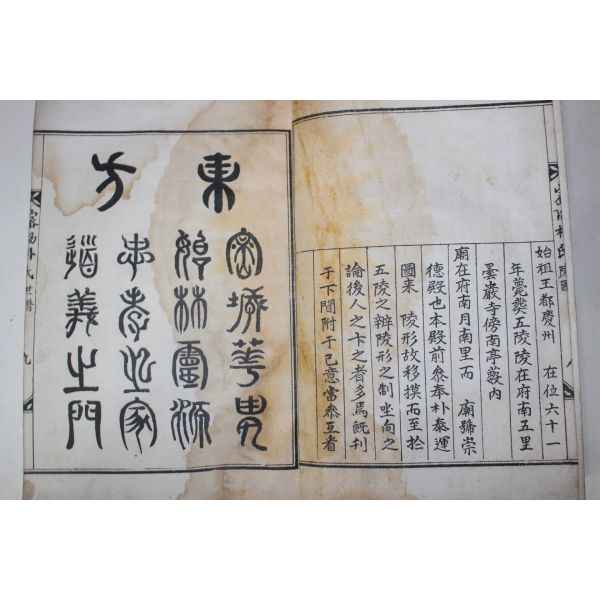 始祖王都慶州 在位六十一
年薨葬五陵陵在府南五里
曇巖寺傍南亭藪内
廟在府南月南里而 廟號崇
德殿也本殿前叅奉朴泰運
圖来 陵形故移摸而至於
五陵之辨陵形之制坐向之
論後人之卞之者多焉旣刋
于下間附于己意當叅互看
東方
密城華冑
始林靈源
本孝之家
道義之門
密陽朴氏世譜 九